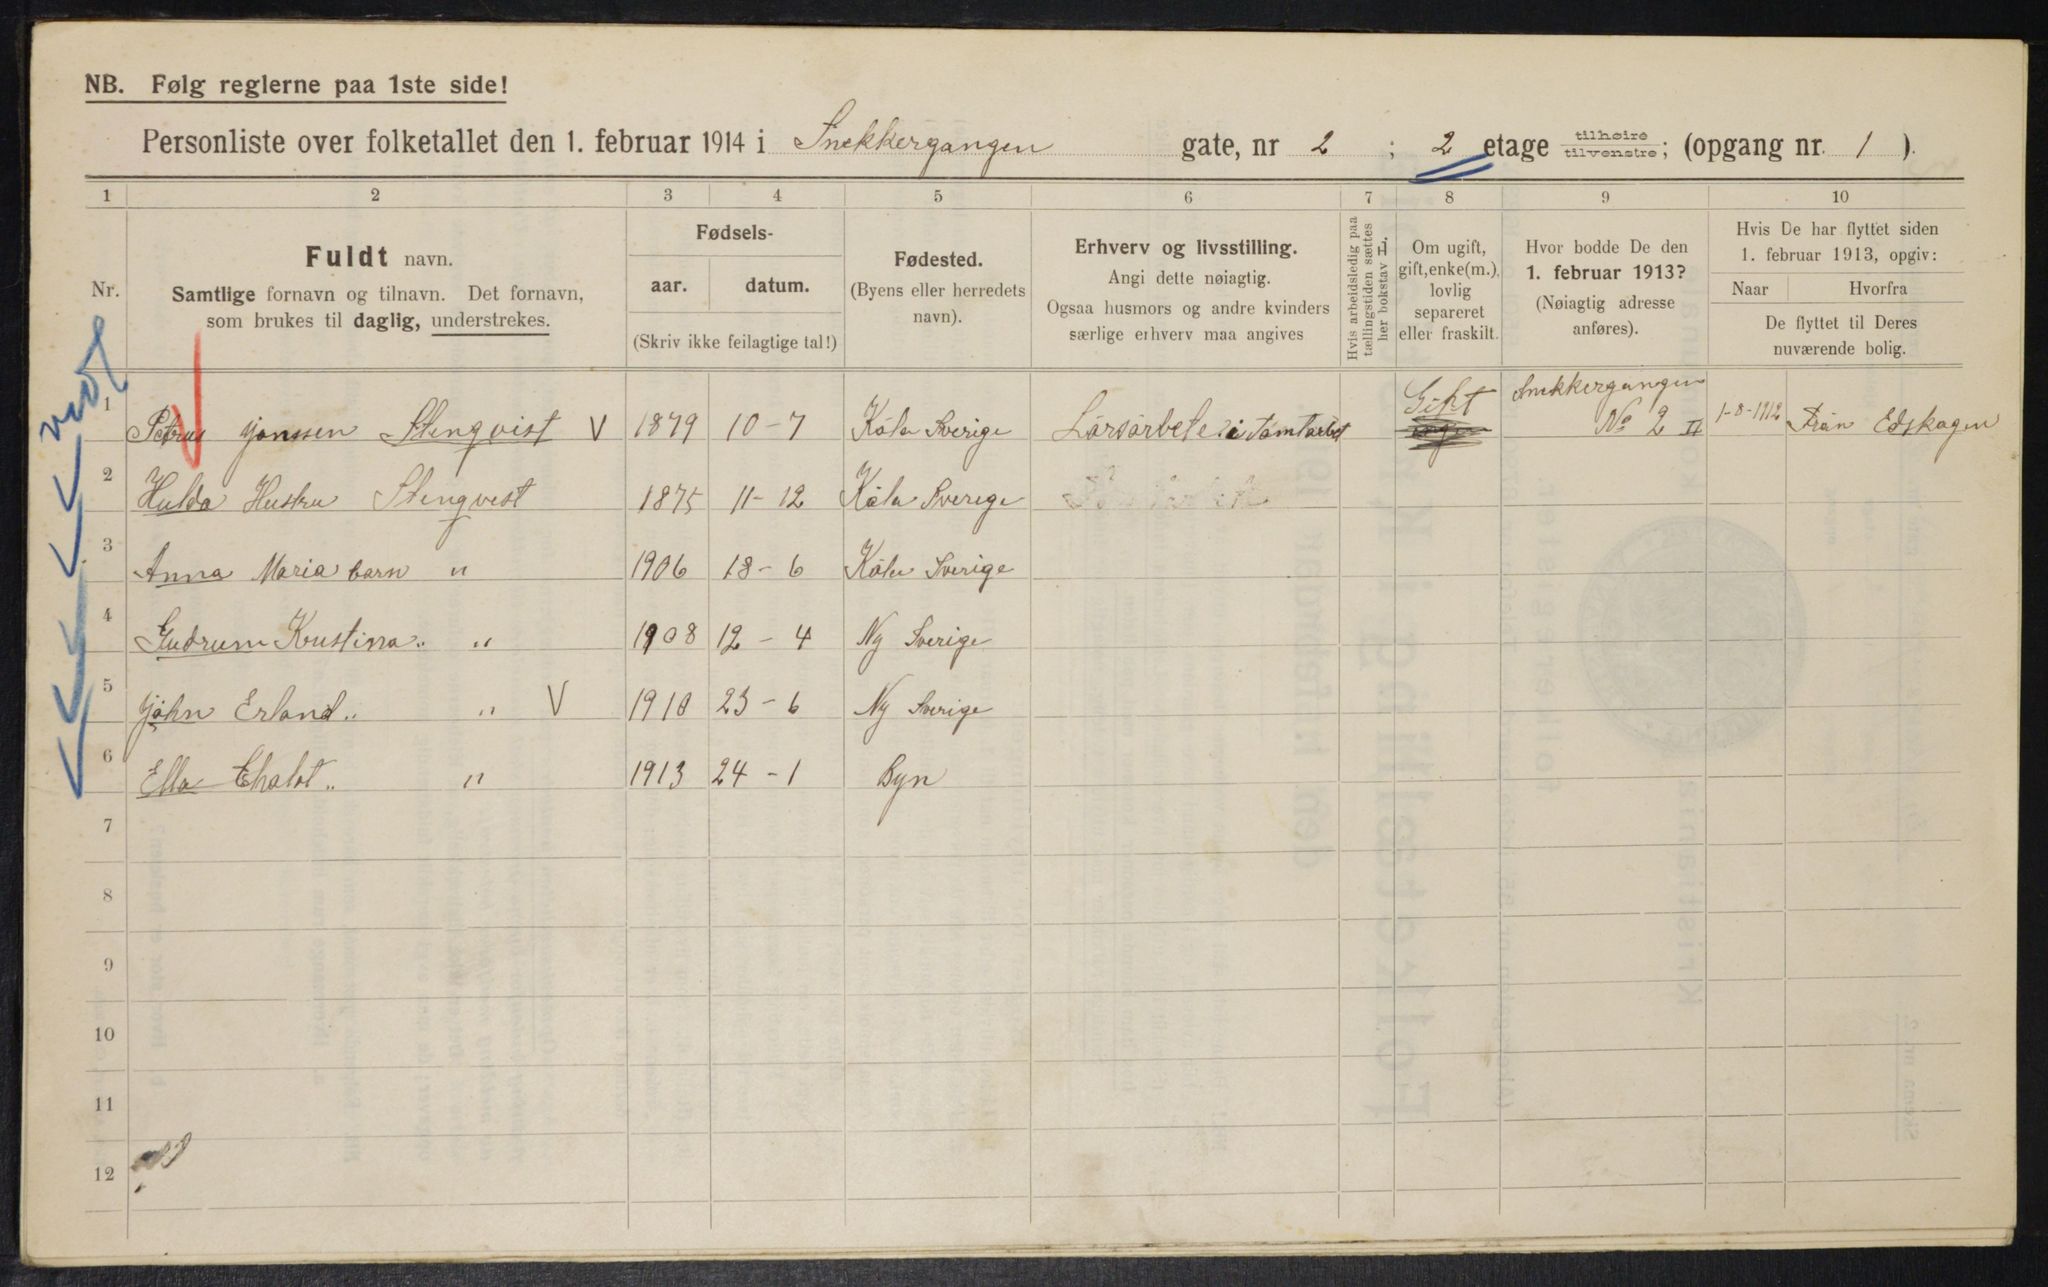 NB. Følg reglerne paa 1ste side!
Personliste over folketallet den 1. februar 1914 i Snekkergangen gate, nr 2 ; 2 etage tilhøire tilvenstre; (opgang nr. 1 ).
1 2 3 4 5 6 7 8 9 10
Nr.
Fuldt navn.
Samtlige fornavn og tilnavn. Det fornavn,
som brukes til daglig, understrekes.
Fødsels-
aar. datum.
(Skriv ikke feilagtige tal!)
Fødested.
(Byens eller herredets
navn).
Erhverv og livsstilling.
Angi dette nøiagtig.
Ogsaa husmors og andre kvinders
særlige erhverv maa angives
Hvis arbeidsledig paa
tællingstiden sættes
her bokstav
Om ugift,
gift, enke(m.),
lovlig
separeret
eller fraskilt.
Hvor bodde De den
1. februar 1913?
(Nøiagtig adresse
anføres).
Hvis De har flyttet siden
1. februar 1913, opgiv:
Naar Hvorfra
De flyttet til Deres
nuværende bolig.
1 Petrus Jonssen Stenqvist V 1879 10-7 Köla Sverige Gift Snekkergangen No 2 II 1-8-1912 Från Edskogen
2 Hulda Hustru Stenqvist 1875 11-12 Köla Sverige
3 Anna Maria barn " 1906 18-6 Köla Sverige
4 Gudrum Kristina " " 1908 12-4 Ny Sverige
5 John Erland " " V 1910 23-6 Ny Sverige
6 Ella " " 1913 24-1 Byn
7
8
9
10
11
12